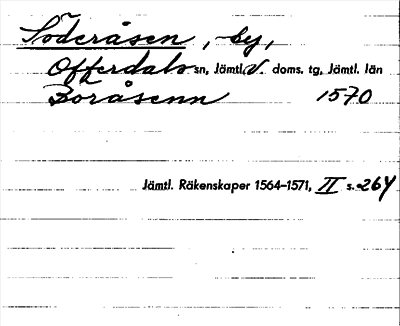 Söderåsen, by,
Offerdals sn, Jämtl. V. doms. tg, Jämtl. län
Boråsenn 1570
Jämtl. Räkenskaper 1564–1571, II s. 264